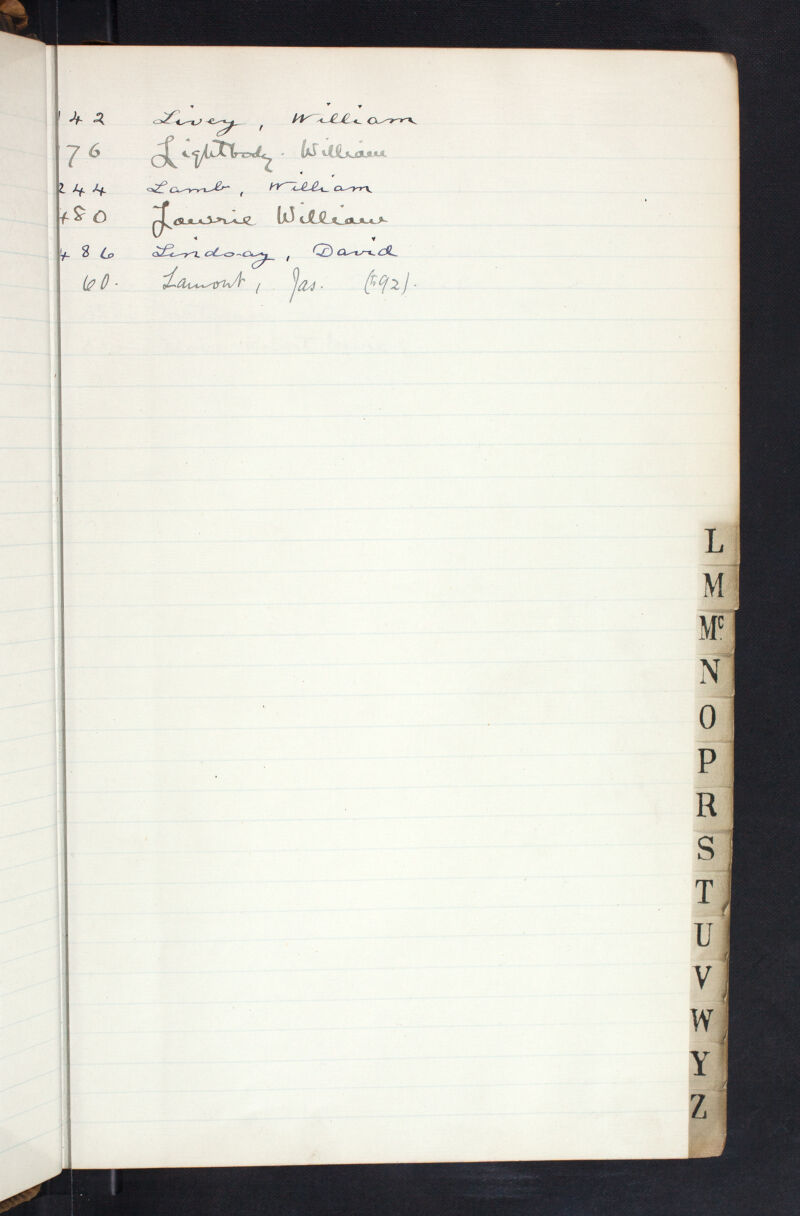 142 Livey, William
176 Lightbody. William
244 Lamb, William
480 Lawrie William
486 Lindsay, David
60. Lamont, Jas. (592).
L
M
Mc.
N
O
P
R
S
T
U
V
W
Y
Z